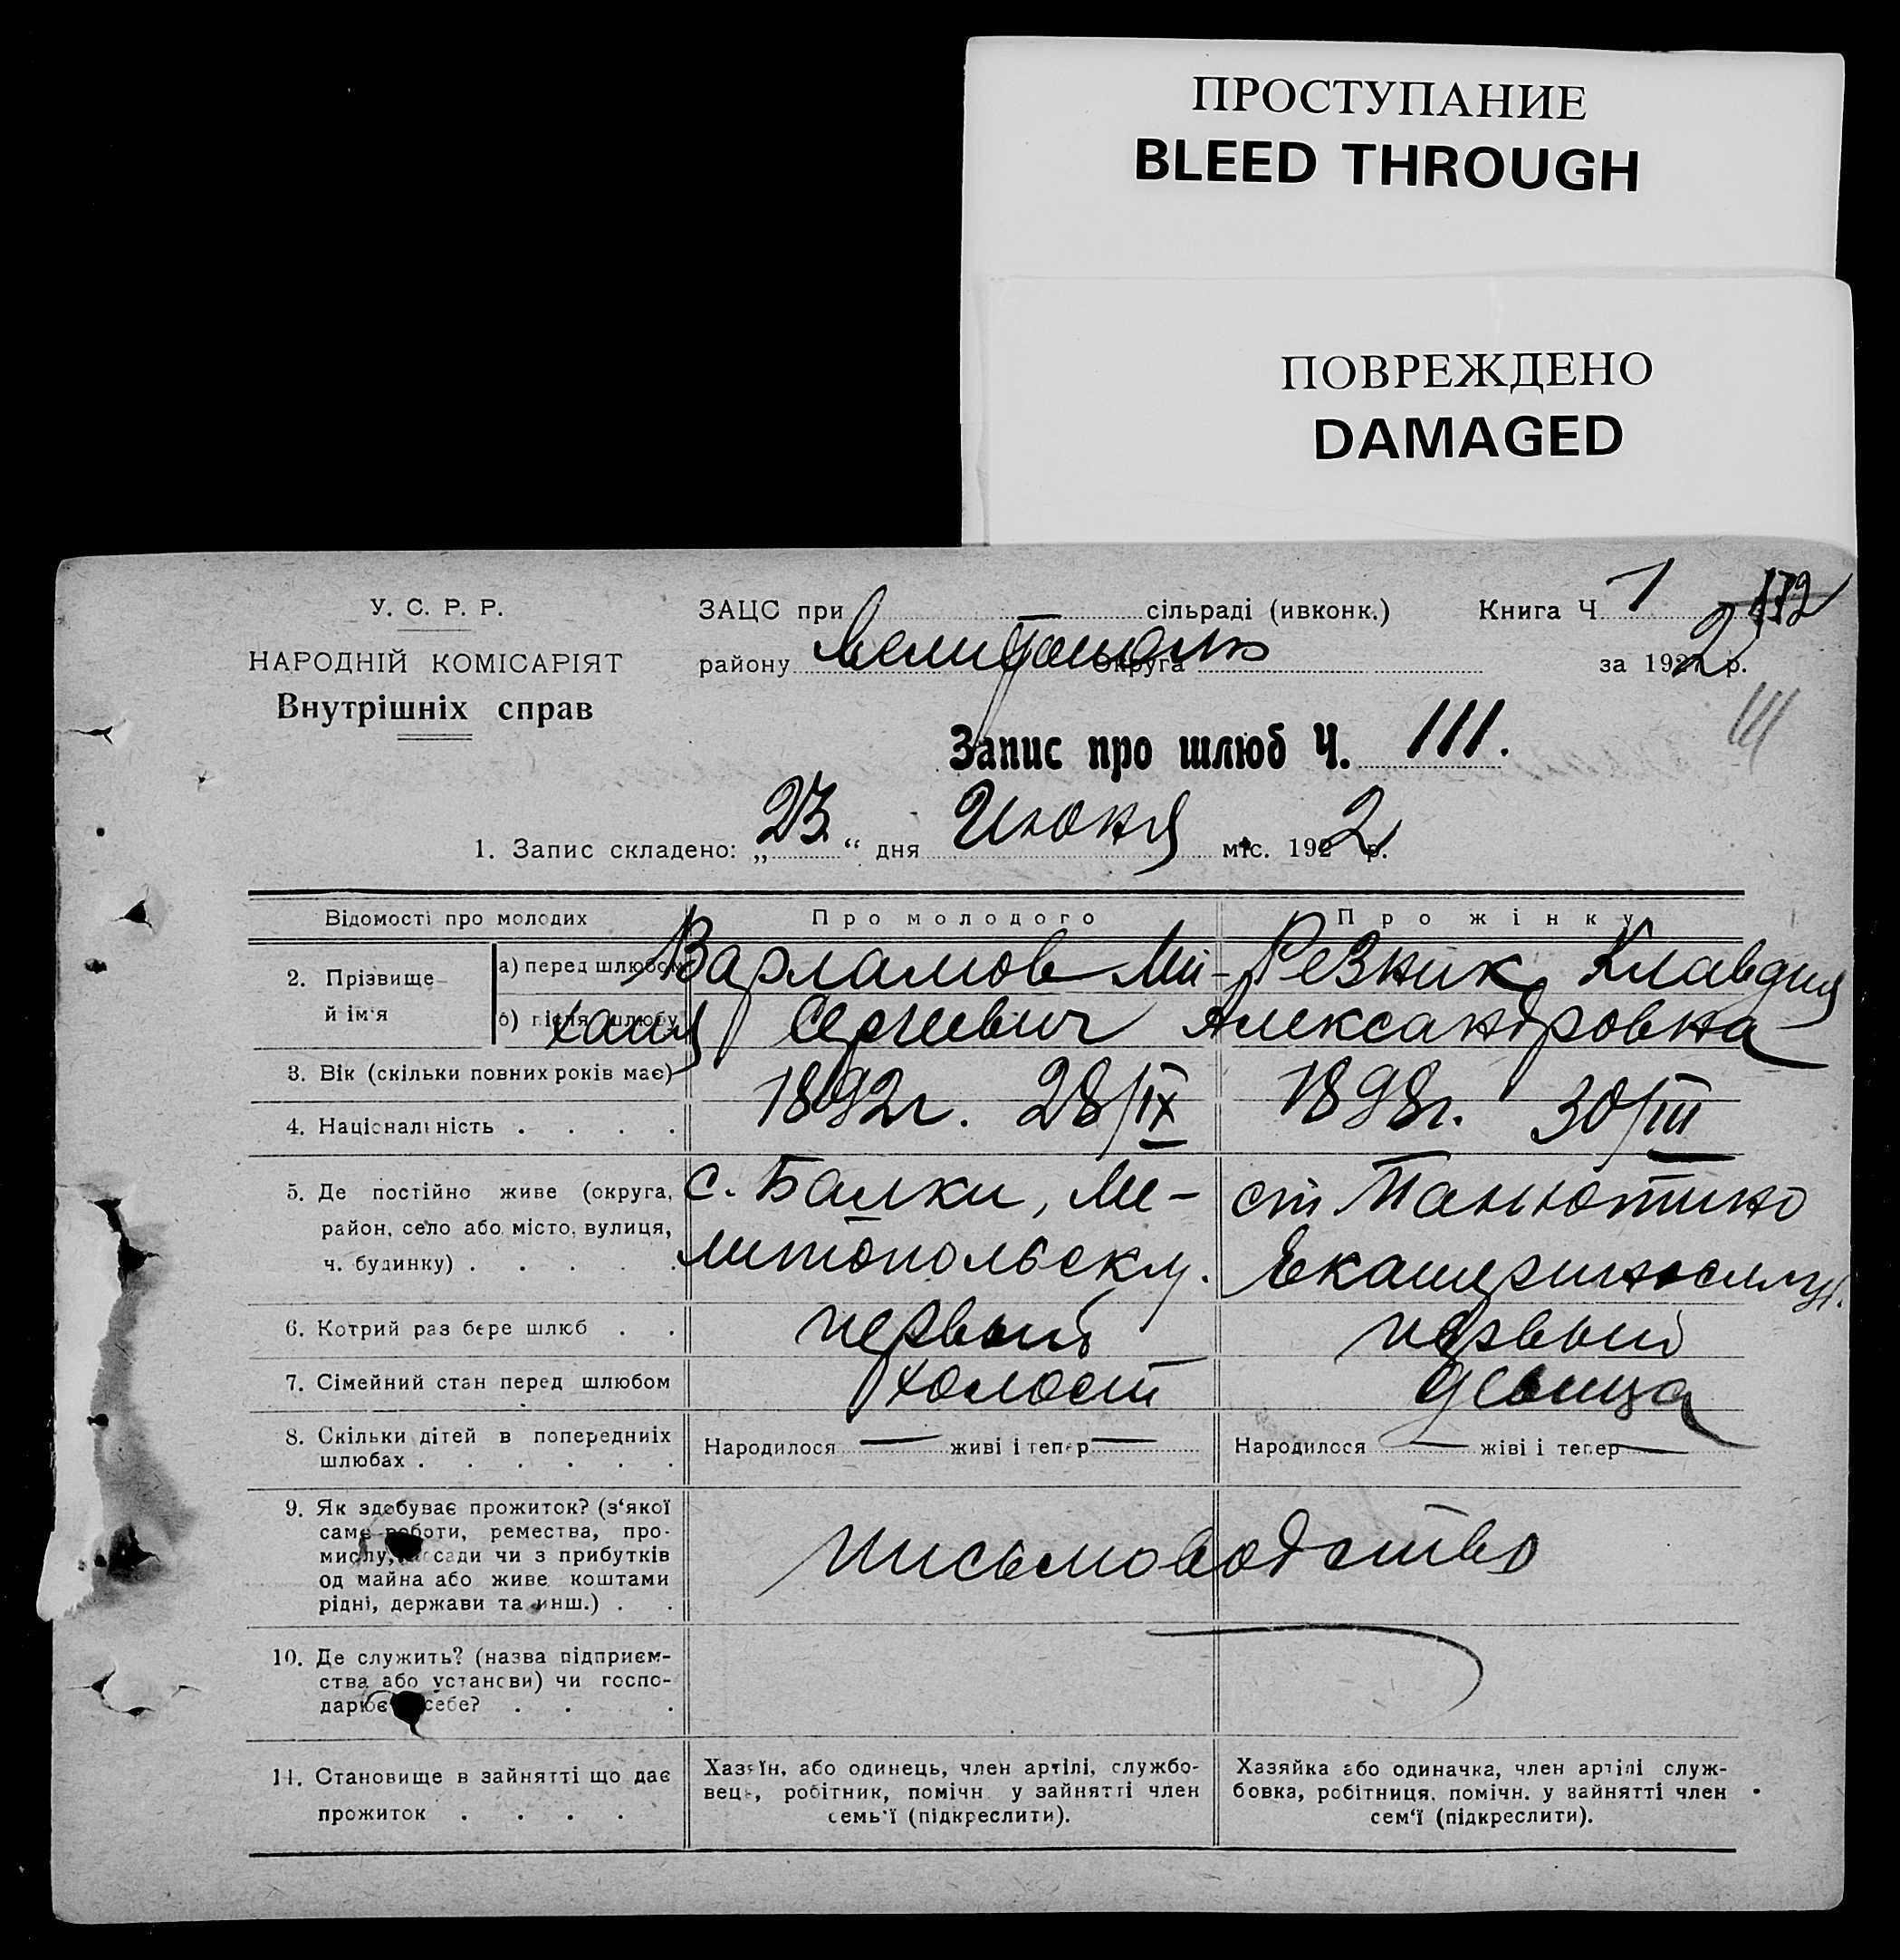 ПРОСТУПАНИЕ
BLEED THROUGH
ПОВРЕЖДЕНО
DAMAGED
У. С. Р. Р.
НАРОДНІЙ КОМІСАРІЯТ
Внутрішніх справ
ЗАЦС при сільраді (ивконк.) Книга Ч 1
району округа за 1922 р.
111
Запис про шлюб Ч. 111.
1. Запис складено: „23“ дня Июня міс. 1922 р.
Відомості про молодих Про молодого Про жінку
2. Прізвище й ім'я а) перед шлюбом б) після шлюбу
Варламов Ми- Резник Клавдия
хаил Сергиевич Александровна
3. Вік (скільки повних років має)
1892г. 28/IX 1898г. 30/III
4. Національність . . . .
5. Де постійно живе (округа,
район, село або місто, вулиця,
ч. будинку) . . . . .
с. Балки, Ме- ст Панютино
литопольск у. Екатеринослу г.
6. Котрий раз бере шлюб . . первый первый
7. Сімейний стан перед шлюбом холост девица
8. Скільки дітей в попередниіх
шлюбах . . . . . .
Народилося — живі і тепер — Народилося — жіві і тепер —
9. Як здобуває прожиток? (з‘якої
саме роботи, ремества, про-
мислу, посади чи з прибутків
од майна або живе коштами
рідні, держави та инш.) . .
письмоводство
10. Де служить? (назва підприєм-
ства або установи) чи госпо-
дарює себе? . . .
11. Становище в зайнятті що дає
прожиток . . . .
Хазяїн, або одинець, член артілі, службо-
вець, робітник, помічн у зайнятті член
семь‘ї (підкреслити).
Хазяйка або одиначка, член артілі служ-
бовка, робітниця, помічн. у зайнятті член
сем‘ї (підкреслити).